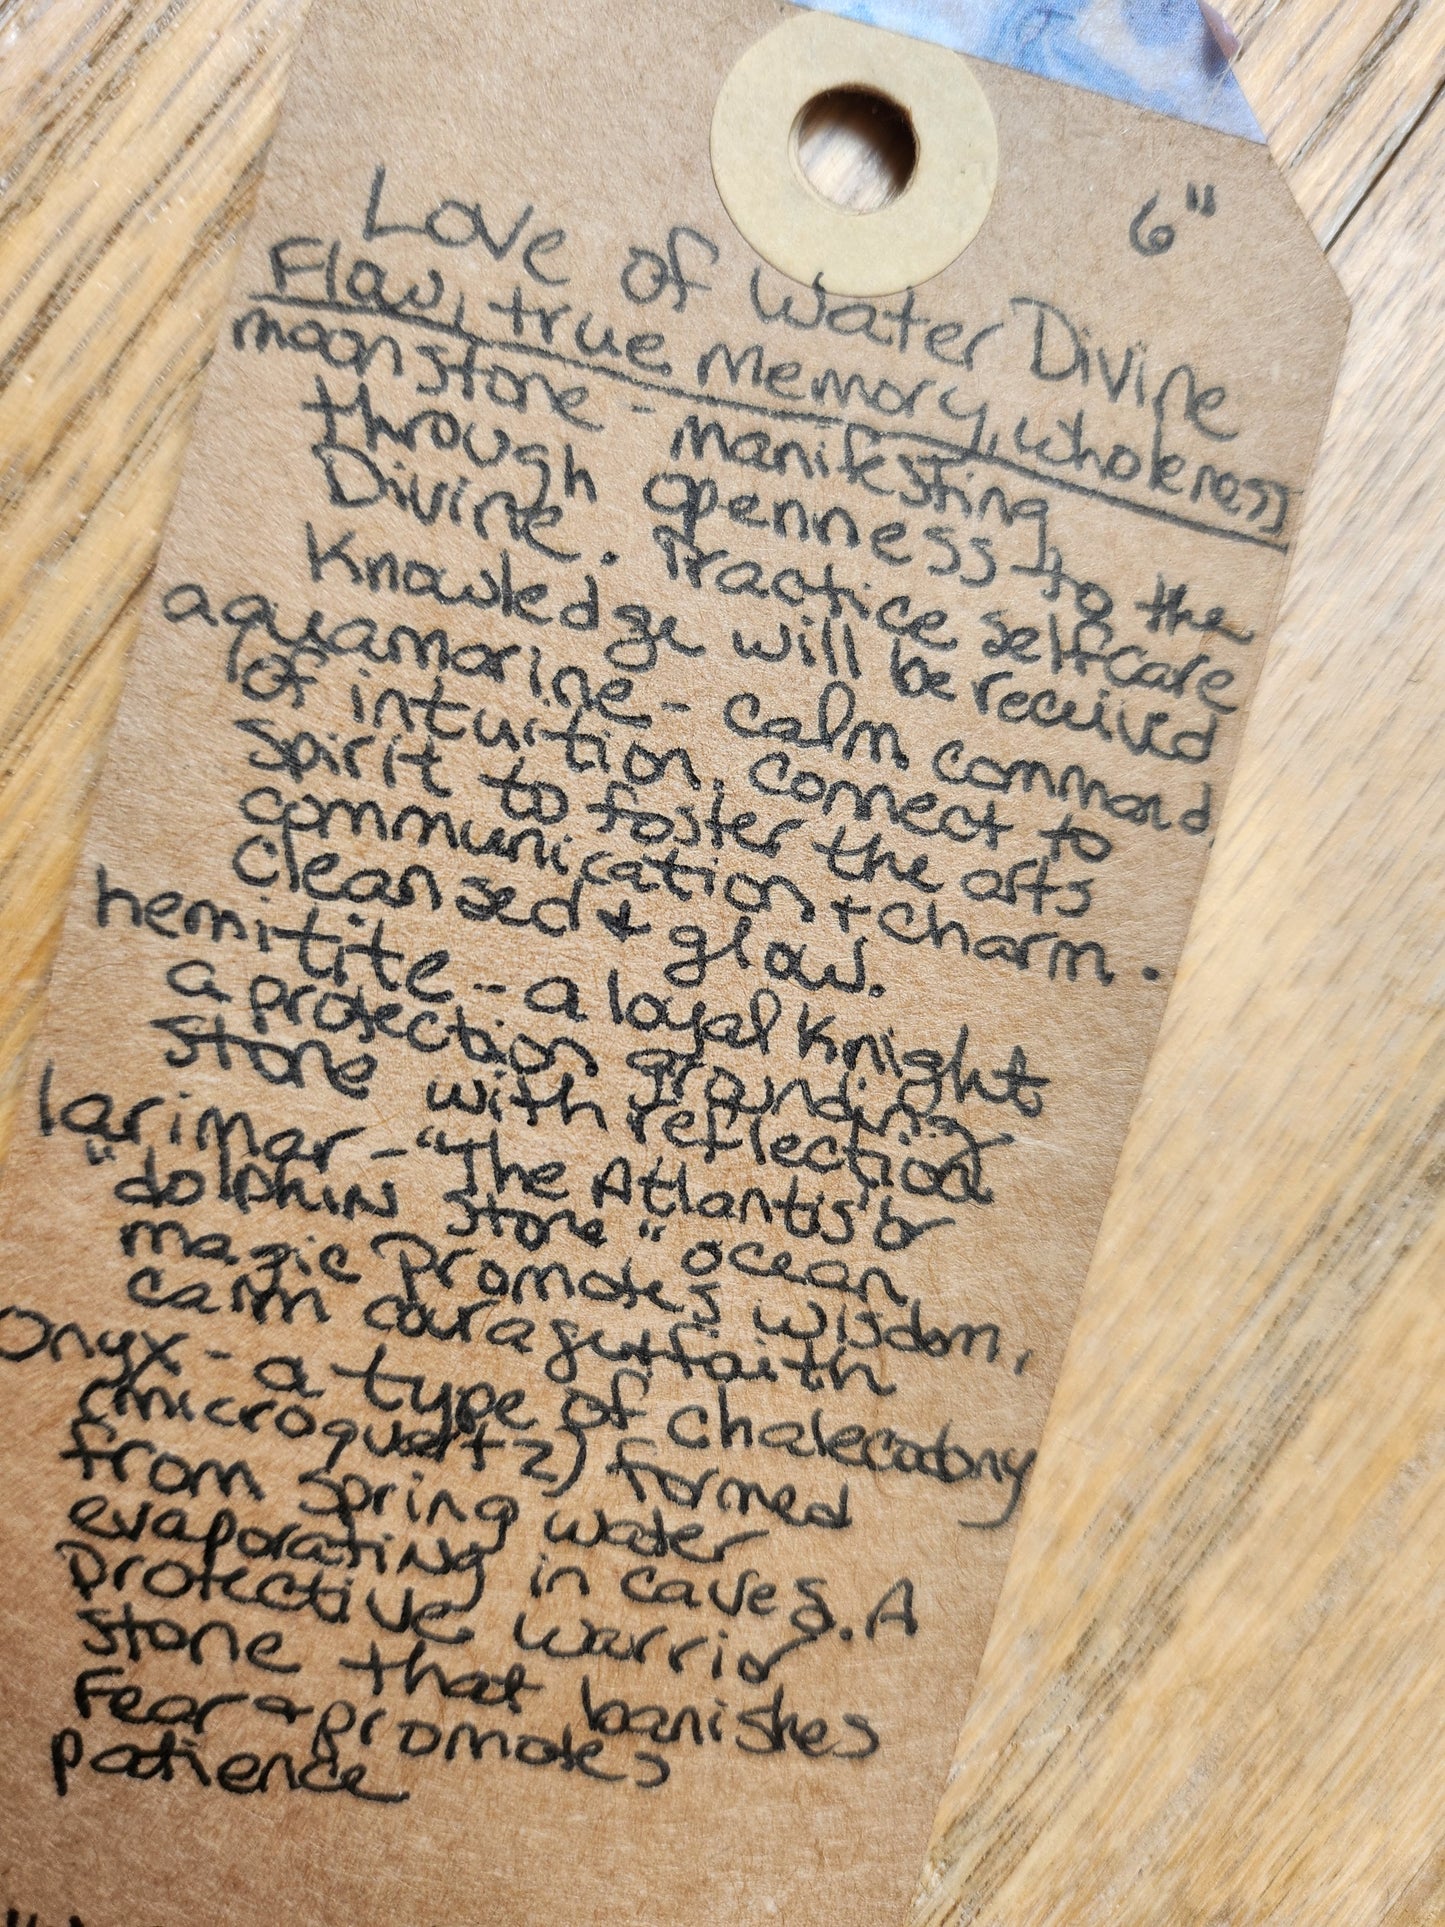 6"
Love of Water Divine
Flow, true memory, wholeness
moonstone - manifesting
through openness to the
Divine. Practice selfcare
Knowledge will be received
aquamarine - calm command
of intuition, connect to
spirit to foster the arts
communication + charm.
Cleansed + glow.
hemitite - a loyal Knight
a protection grounding
stone with reflection
larimar - "The Atlantis or
"dolphin stone" ocean
magic Promotes wisdom,
calm courage + faith
Onyx - a type of chalecadony
(microquartz) formed
from spring water
evaporating in caves. A
protective warrior
stone that banishes
Fear + promotes
patience